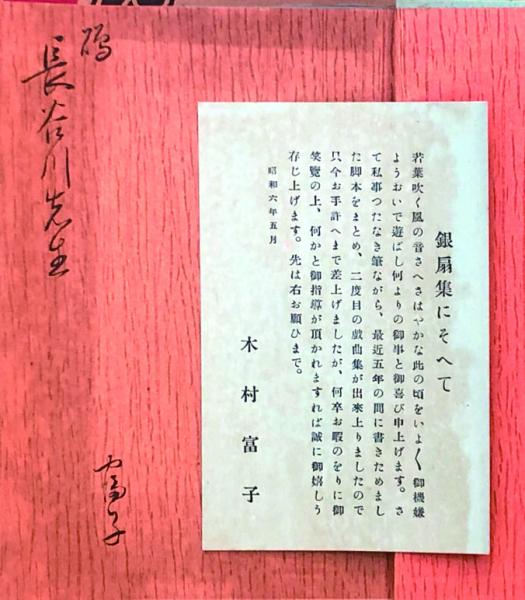 銀扇集にそへて
若葉吹く風の音さへさはやかな此の頃をいよ〱御機嫌
ようおいで遊ばし何よりの御事と御喜び申上げます。さ
て私事つたなき筆ながら、最近五年の間に書きためまし
た脚本をまとめ、二度目の戯曲集が出來上りましたので
只今お手許へまで差上げましたが、何卒お暇のをりに御
笑覽の上、何かと御指導が頂かれますれば誠に御嬉しう
存じ上げます。先は右お願ひまで。
昭和六年五月
木村富子
長谷川先生
富子